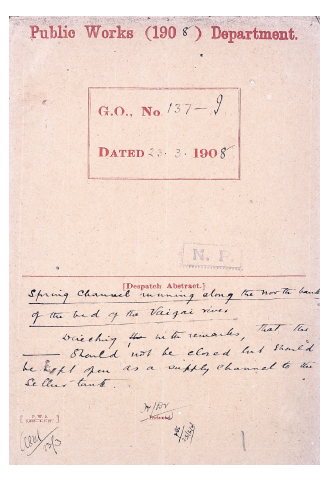 Public Works (1908) Department.
G.O., No 137-I
DATED 23.3.1908
N. P.
[Despatch Abstract.]
Spring Channel running along the north bank
of the bed of the Vaigai river
Directing with remarks, that the
should not be closed but should
be kept open as a supply channel to the
Sellur tank.